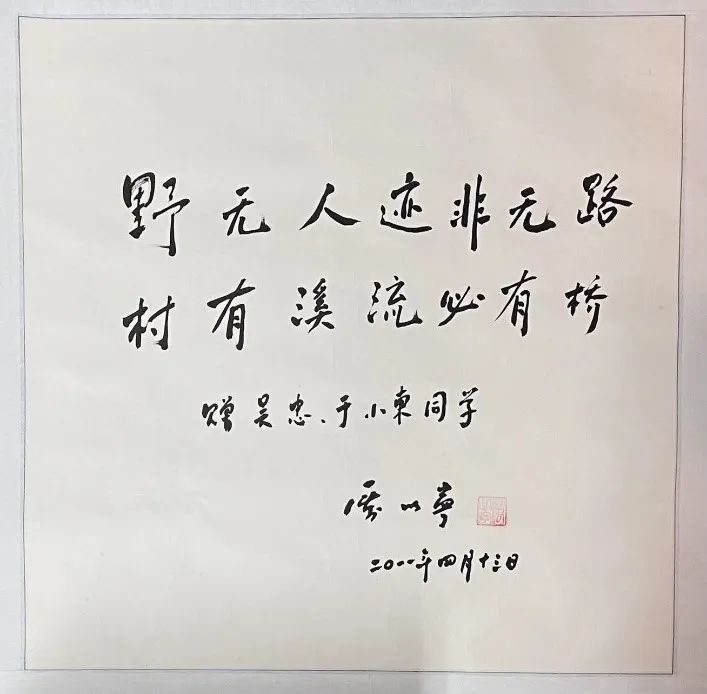 野无人迹非无路
村有溪流必有桥
赠吴忠、于小東同学
厉以宁
二〇〇八年四月十三日